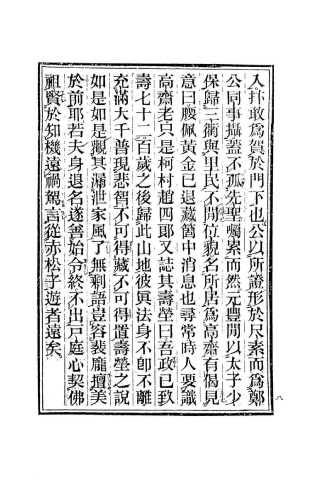 入抃敢爲賀於門下也公以所證形於尺素而爲鄭
公同事攝蓋不孤先聖囑累而然元豐間以太子少
保歸三衢與里民不間位貌名所居爲高齋有偈見
意曰腰佩黃金已退藏箇中消息也尋常時人要識
高齋老只是柯村趙四郎又誌其壽塋曰吾政已致
壽七十二百歲之後歸此山地彼眞法身不卽不離
充滿大千普現悲智不可得藏不可得置壽塋之說
如是如是觀其漏泄家風了無剩語豈容裴龐擅美
於前耶若夫身退名遂善始令終不出戸庭心契佛
祖賢於知機遠禍駕言從赤松子遊者遠矣
八